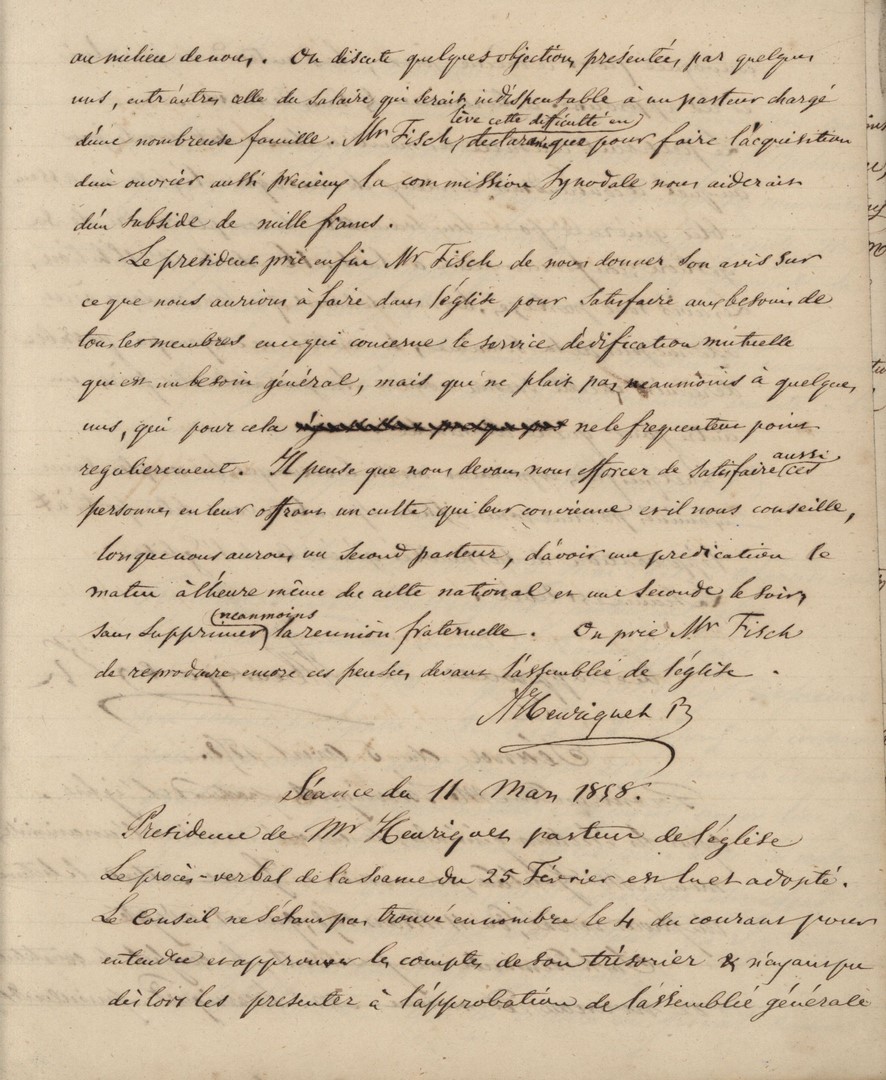 au milieu de nous. On discute quelques objections présentées par quelques
uns, entr'autres celle du salaire qui serait indispensable à un pasteur chargé
d'une nombreuse famille. Mr Fisch lève cette difficulté en declarant que pour faire l'acquisition
d'un ouvrier aussi précieux la commission synodale nous aiderait
d'un subside de mille francs.
Le president prie enfin Mr Fisch de nous donner son avis sur
ce que nous aurions à faire dans l'église pour satisfaire aux besoins de
tous les membres en ce qui concerne le service d'édification mutuelle
qui est un besoin général, mais qui ne plait pas neaumoins à quelques
uns, qui pour cela ne le frequentent point
regulierement. Il pense que nous devons nous efforcer de satisfaire aussi ces
personnes en leur offrant un culte qui leur convienne et il nous conseille,
lorsque nous aurons un second pasteur, d'avoir une predication le
matin à l'heure même du culte national et une seconde le soir,
sans supprimer neanmoins la reunion fraternelle. On prie Mr Fisch
de reproduire encore ces pensées devant l'assemblée de l'église.
A Henriquet P
Séance du 11 Mars 1858.
Presidence de Mr Henriquet pasteur de l'église
Le procès-verbal de la séance du 25 Février est lu et adopté.
Le Conseil ne s'étant pas trouvé en nombre le 4 du courant pour
entendre et approuver les comptes de son trésorier & n'ayant pu
dès lors les presenter à l'approbation de l'assemblée générale